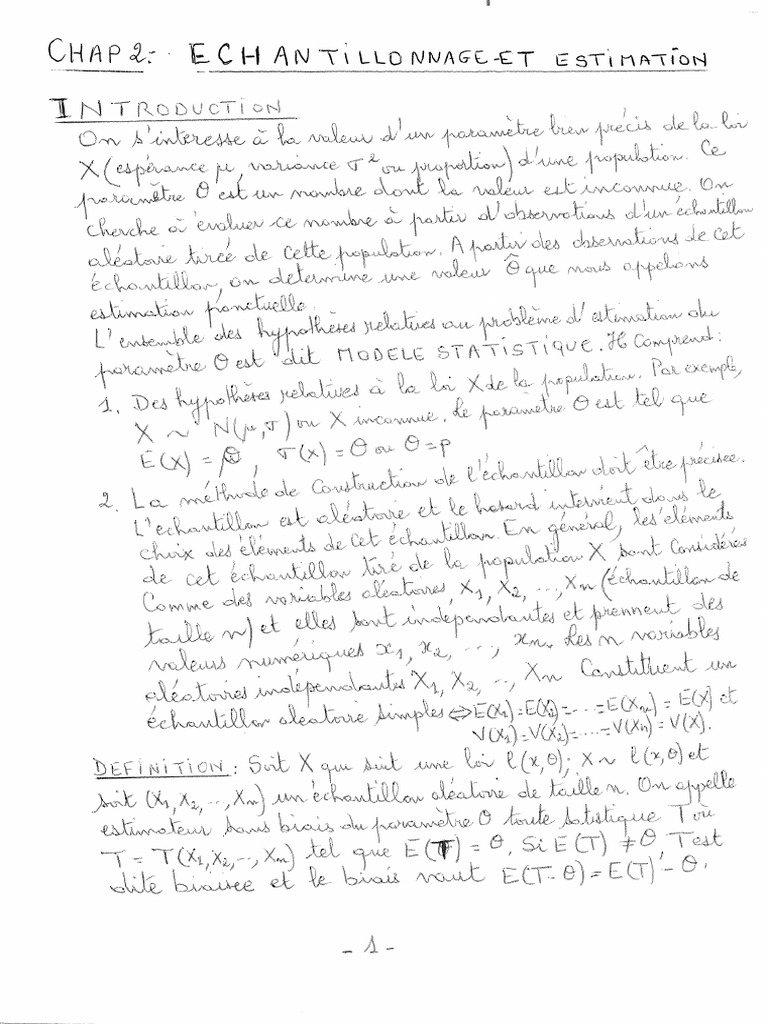 CHAP 2:. ECHANTILLONNAGE ET ESTIMATION
INTRODUCTION
On s'interesse à la valeur d'un paramètre bien précis de la loi
X (espérance μ, variance σ² ou proportion) d'une population. Ce
paramètre θ est un nombre dont la valeur est inconnue. On
cherche à évaluer ce nombre à partir d'observations d'un échantillon
aléatoire tirée de cette population. A partir des observations de cet
échantillon, on détermine une valeur θ̂ que nous appelons
estimation ponctuelle.
L'ensemble des hypothèses relatives au problème d'estimation du
paramètre θ est dit MODELE STATISTIQUE. Il Comprend:
1. Des hypothèses relatives à la loi X de la population. Par exemple,
X ~ N(μ, σ) ou X inconnue. Le paramètre θ est tel que
E(X) = θ, σ(x) = θ ou θ = p
2. La méthode de Construction de l'échantillon doit être précisée.
L'echantillon est aléatoire et le hasard intervient dans le
choix des éléments de cet échantillon. En général, les éléments
de cet échantillon tiré de la population X sont Considérés
Comme des variables aléatoires, X₁, X₂, ..., Xn (échantillon de
taille n) et elles sont indépendantes et prennent des
valeurs numériques x₁, x₂, ..., xn. Les n variables
aléatoires indépendantes X₁, X₂, .., Xn Constituent un
échantillon aleatoire simples ⇔ E(X₁) = E(X₂) = ... = E(Xn) = E(X) et
V(X₁) = V(X₂) = ... = V(Xn) = V(X).
DEFINITION : Soit X qui suit une loi l(x, θ); X ~ l(x, θ) et
soit (X₁, X₂, .., Xn) un échantillon aléatoire de taille n. On appelle
estimateur sans biais du paramètre θ toute satistique T où
T = T(X₁, X₂, .., Xn) tel que E(T) = θ. Si E(T) ≠ θ, T est
dite biaisee et le biais vaut E(T - θ) = E(T) - θ.
- 1 -